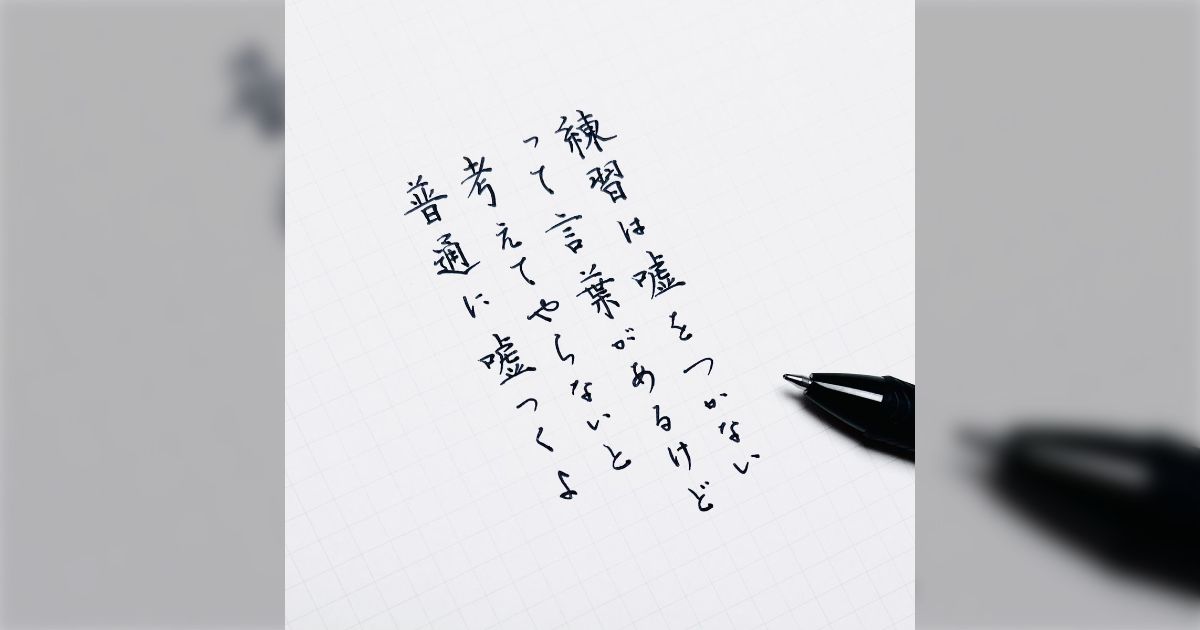 練習は嘘をつかない
って言葉があるけど
考えてやらないと
普通に嘘つくよ